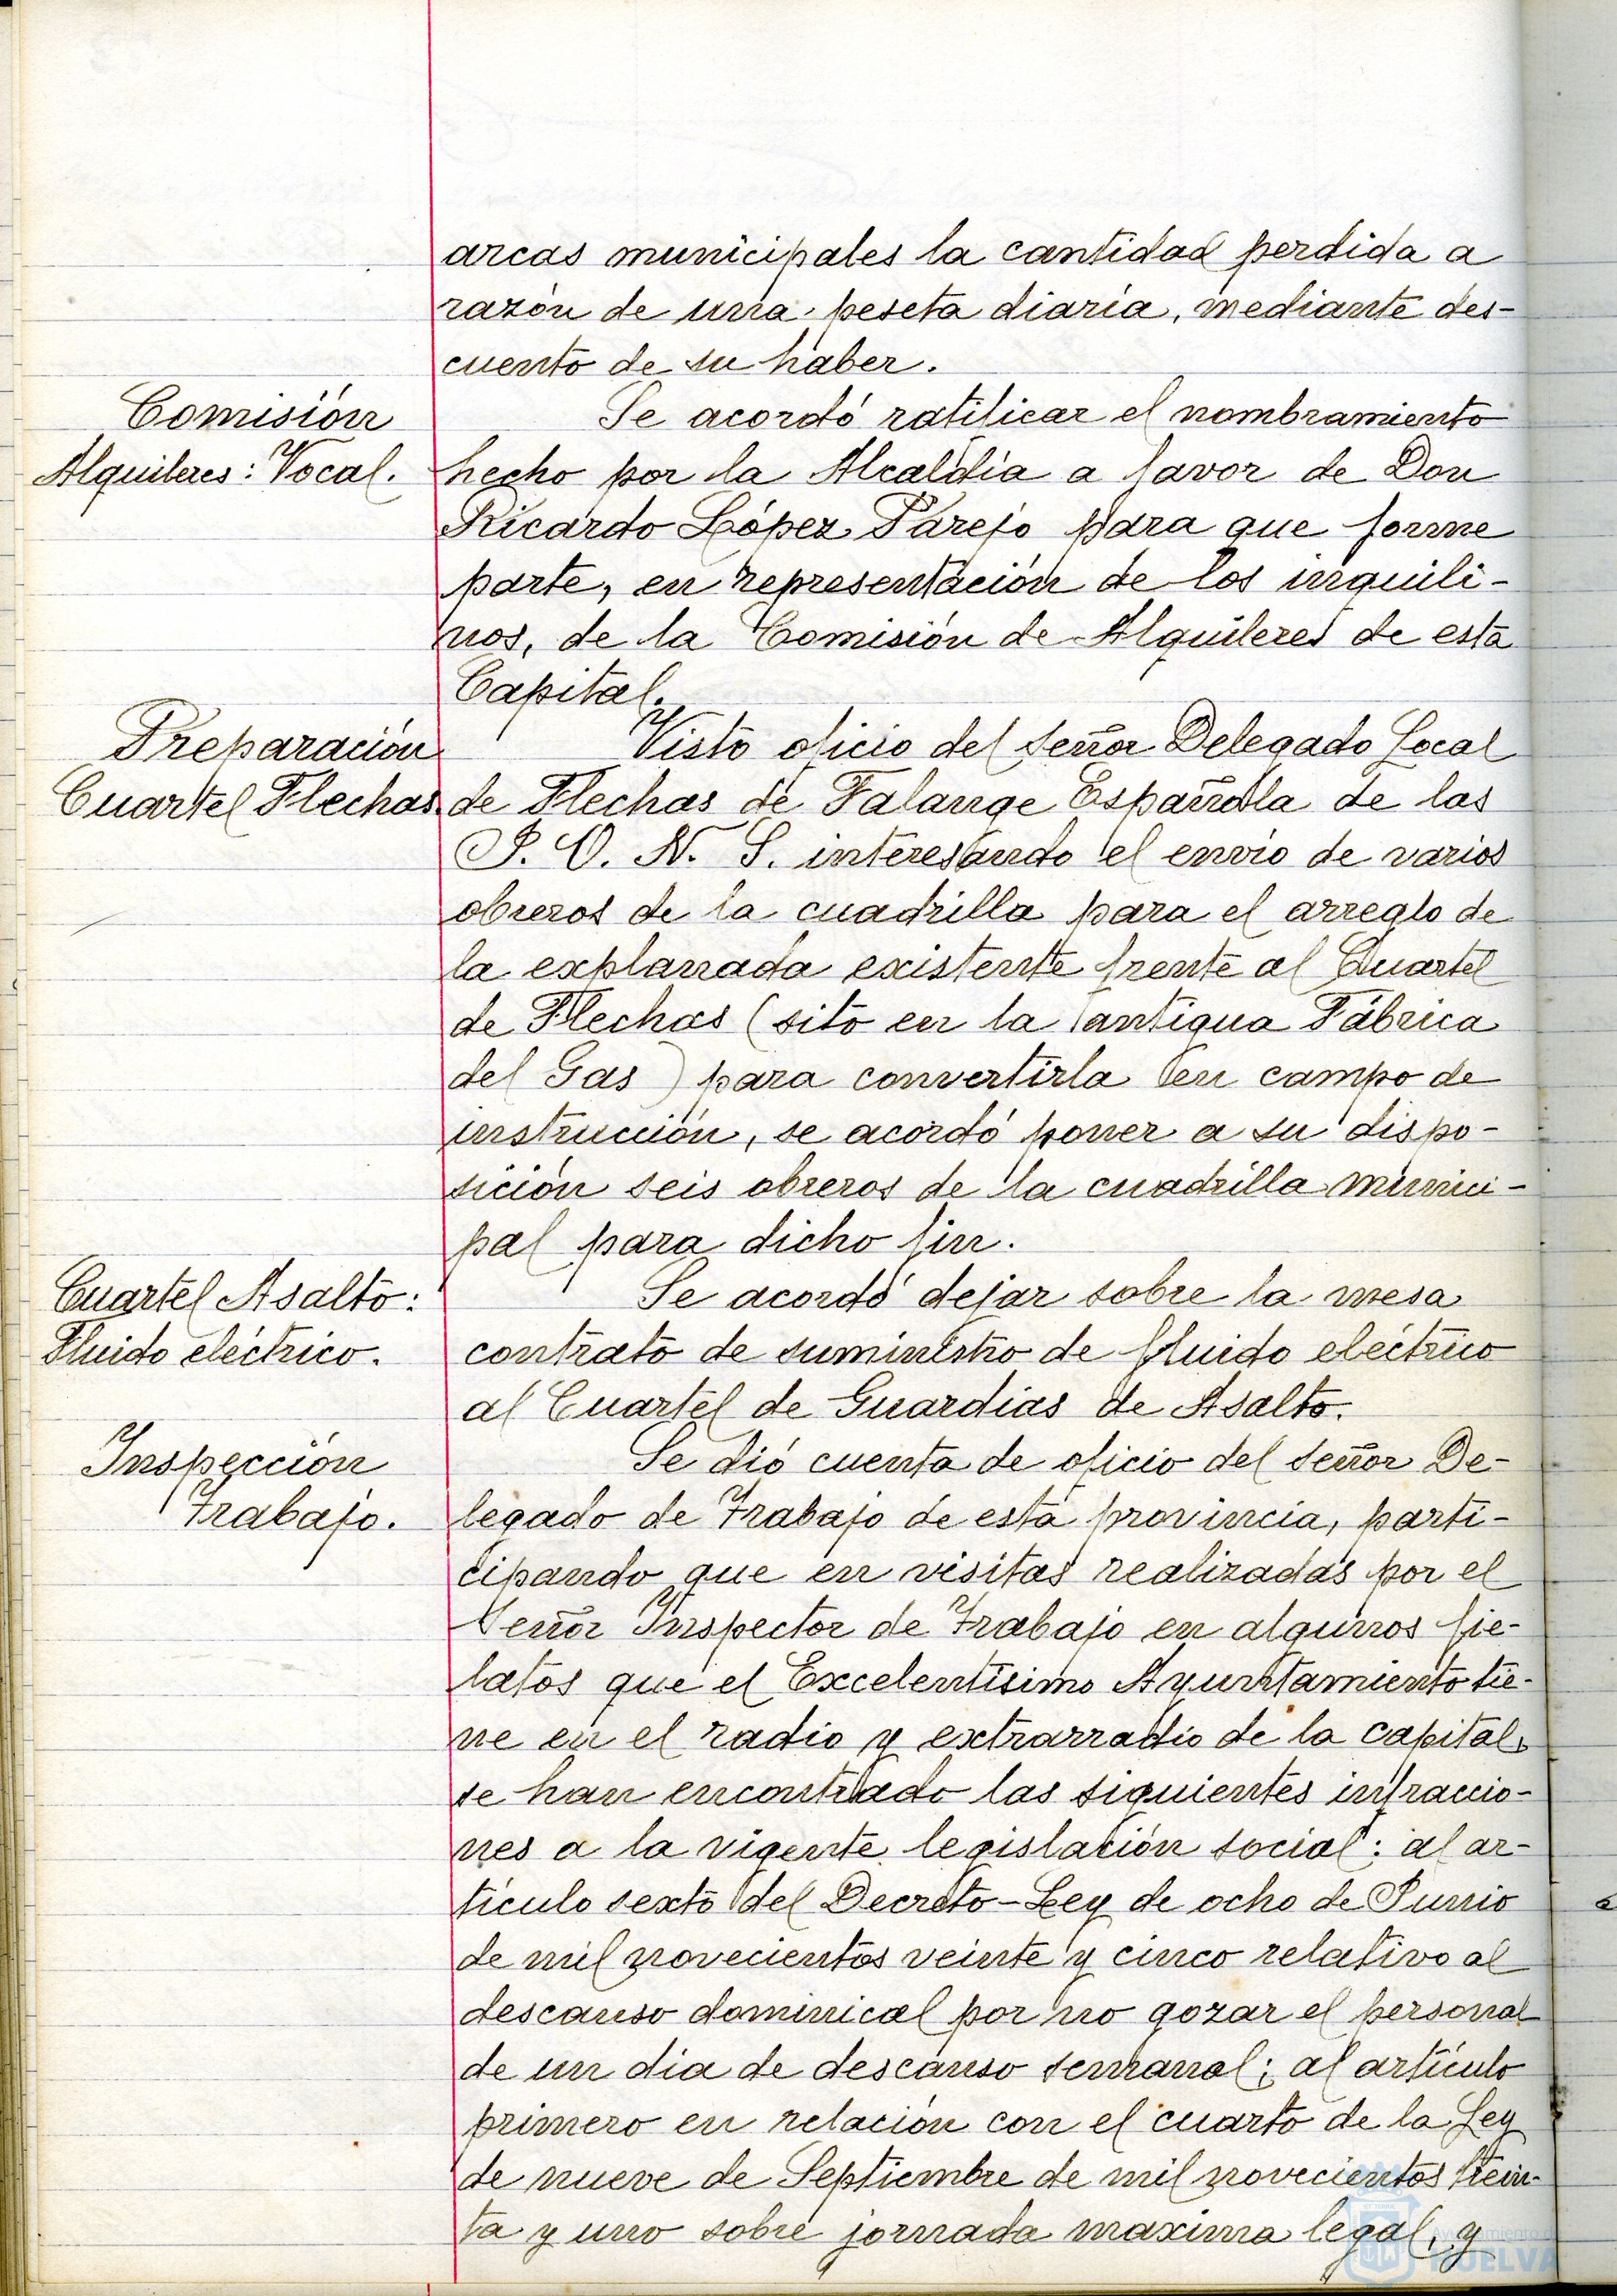 arcas municipales la cantidad perdida a
razón de una peseta diaria, mediante des-
cuento de su haber.
Comisión
Alquileres: Vocal.
Se acordó ratificar el nombramiento
hecho por la Alcaldía a favor de Don
Ricardo López Parejo para que forme
parte, en representación de los inquili-
nos, de la Comisión de Alquileres de esta
Capital.
Preparación
Cuartel Flechas.
Visto oficio del Señor Delegado Local
de Flechas de Falange Española de las
J. O. N. S. interesando el envío de varios
obreros de la cuadrilla para el arreglo de
la explanada existente frente al Cuartel
de Flechas (sito en la antigua Fábrica
del Gas) para convertirla en campo de
instrucción, se acordó poner a su dispo-
sición seis obreros de la cuadrilla munici-
pal para dicho fin.
Cuartel Asalto:
Fluido eléctrico.
Se acordó dejar sobre la mesa
contrato de suministro de fluido eléctrico
al Cuartel de Guardias de Asalto.
Inspección
Trabajo.
Se dió cuenta de oficio del Señor De-
legado de Trabajo de esta provincia, parti-
cipando que en visitas realizadas por el
Señor Inspector de Trabajo en algunos fie-
latos que el Excelentísimo Ayuntamiento tie-
ne en el radio y extrarradio de la capital,
se han encontrado las siguientes infraccio-
nes a la vigente legislación social: al ar-
tículo sexto del Decreto-Ley de ocho de Junio
de mil novecientos veinte y cinco relativo al
descanso dominical por no gozar el personal
de un día de descanso semanal; al artículo
primero en relación con el cuarto de la Ley
de nueve de Septiembre de mil novecientos trein-
ta y uno sobre jornada maxima legal, y
Ayuntamiento de
HUELVA